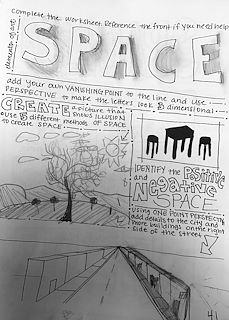 Complete the worksheet. Reference the front if you need help
elements of art
SPACE
add your own VANISHING POINT to the line and use
PERSPECTIVE to make the letters look 3 dimensional.
CREATE a picture that
shows ILLUSION
use 3 different methods of SPACE
to create SPACE
IDENTIFY the Positive
and
Negative
SPACE
USING ONE POINT PERSPECTIVE
add details to the city and
more buildings on the right
side of the street
41